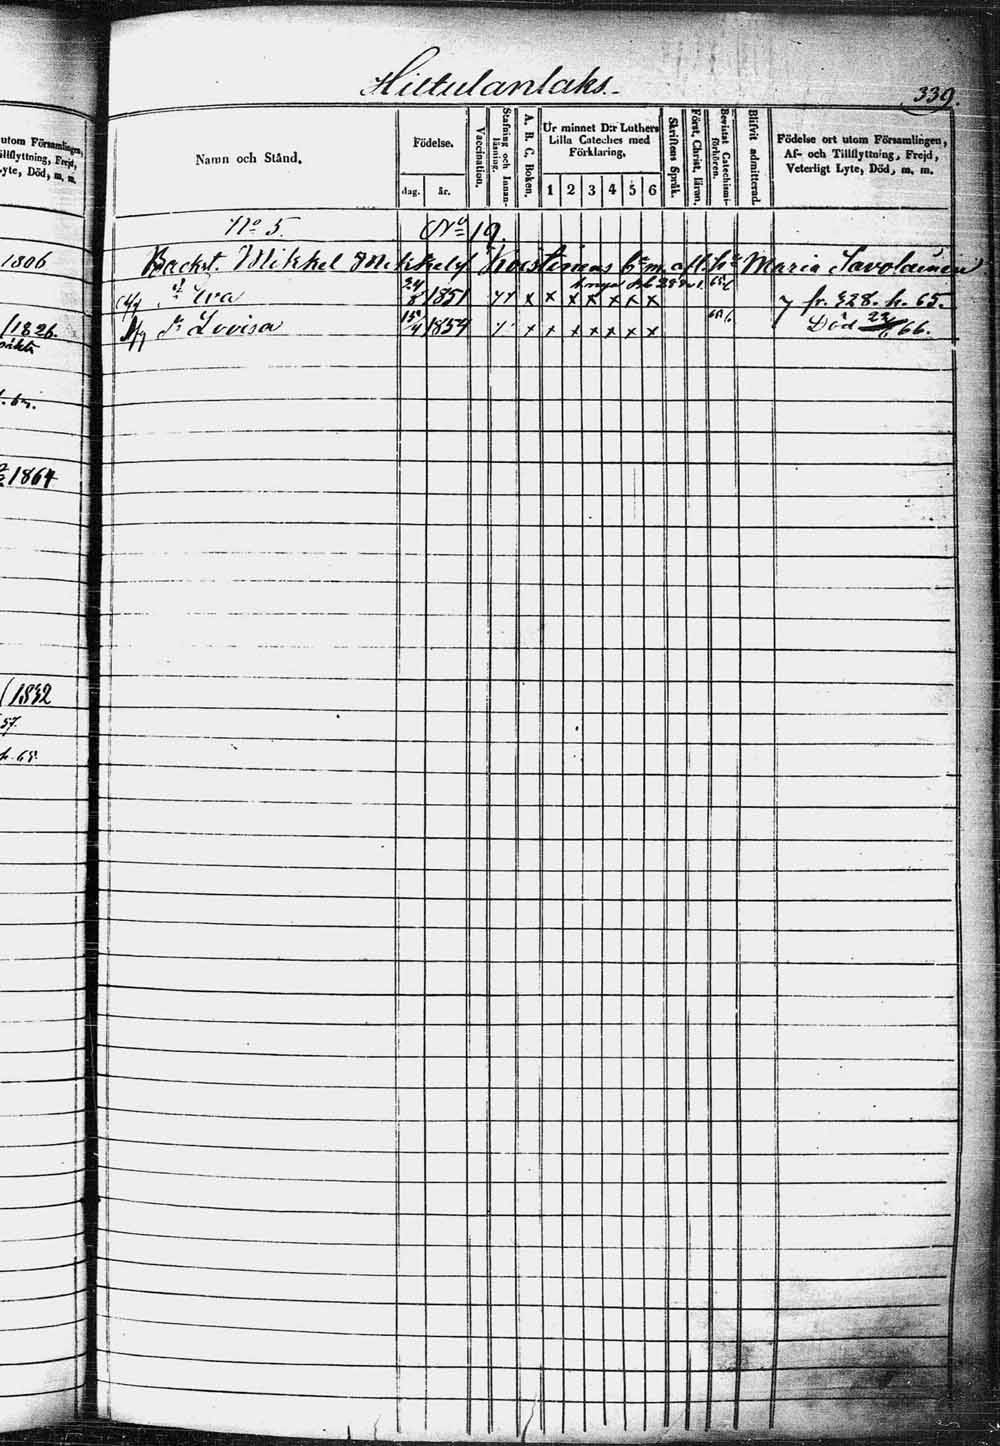 Hiltulanlaks.
339.
utom Församlingen,
Tillflyttning, Frejd,
Lyte, Död, m. m.
1806
1826
1864
1832
57.
h. 65
Namn och Stånd.
Födelse.
dag.
år.
Vaccination.
Stafning och Innan-
läsning.
A. B. C. Boken.
Ur minnet D:r Luthers
Lilla Cateches med
Förklaring.
1 2 3 4 5 6
Skriftens Språk.
Först. Christ. läran.
Bevistat Catechismi-
förhören.
Blifvit admitterad.
Födelse ort utom Församlingen,
Af- och Tillflyttning, Frejd,
Veterligt Lyte, Död, m. m.
No 5. No 19.
Backst. Mikkel Mikkelss Koistinens b:a m. afl. h:u Maria Savolainen
Eva 24/8 1851 x x x x x x x 65/6 fr. 328. h. 65.
Lovisa 15/4 1854 x x x x x x x 65/6 Död 23/6 66.